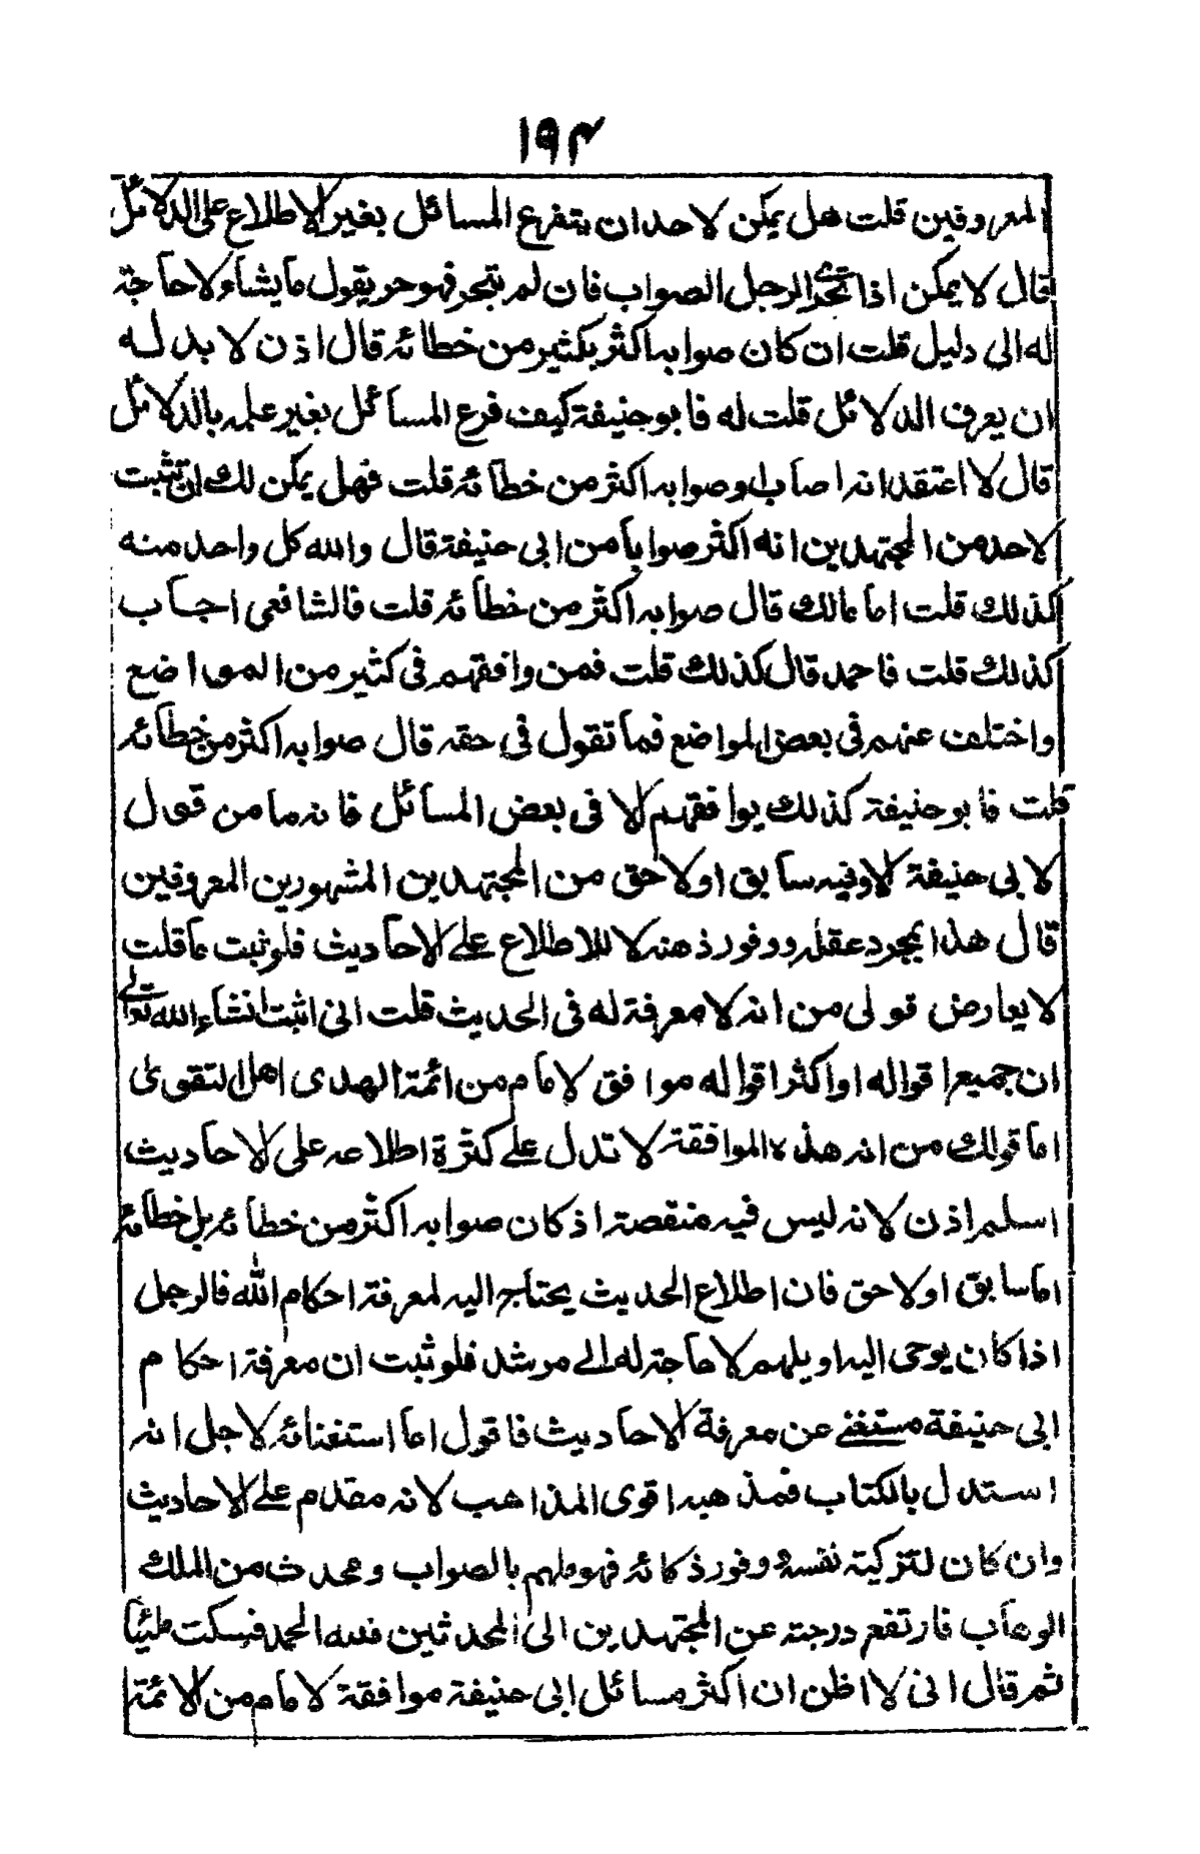 ۱۹۴
المعروفين قلت هل يمكن لاحد ان يتفرع المسائل بغير الاطلاع على الدلائل
قال لا يمكن اذا تحرى الرجل الصواب فان لم يتحر فهو حر يقول ما يشاء ولا حاجة
له الى دليل قلت ان كان صوابه اكثر بكثير من خطائه قال اذن لا بد له
ان يعرف الدلائل قلت له فابو حنيفة كيف فرع المسائل بغير علمه بالدلائل
قال لا اعتقد انه اصاب او صوابه اكثر من خطائه قلت فهل يمكن لك ان تثبت
لاحد من المجتهدين انه اكثر صوابا من ابى حنيفة قال والله كل واحد منه
كذلك قلت اما مالك قال صوابه اكثر من خطائه قلت فالشافعى اجاب
كذلك قلت فاحمد قال كذلك قلت فمن وافقهم فى كثير من المواضع
واختلف عنهم فى بعض المواضع فما تقول فى حقه قال صوابه اكثر من خطائه
قلت فابو حنيفة كذلك يوافقهم الا فى بعض المسائل فانه ما من قول
لابى حنيفة الا وفيه سابق او لاحق من المجتهدين المشهورين المعروفين
قال هذا بمجرد عقله ووفور ذهنه لا للاطلاع على الاحاديث فلو ثبت ما قلت
لا يعارض قولى من انه لا معرفة له فى الحديث قلت انى اثبت انشاء الله تعالى
ان جميع اقواله او اكثر اقواله موافق لامام من ائمة الهدى اهل التقوى
اما قولك من انه هذه الموافقة لا تدل على كثرة اطلاعه على الاحاديث
اسلم اذن لانه ليس فيه منقصة اذ كان صوابه اكثر من خطائه بل خطائه
اما سابق او لاحق فان اطلاع الحديث يحتاج اليه لمعرفة احكام الله فالرجل
اذا كان يوحى اليه او يلهم لا حاجة له الى مرشد فلو ثبت ان معرفة احكام
ابى حنيفة مستغنى عن معرفة الاحاديث فاقول اما استغنائه لاجل انه
استدل بالكتاب فمذهبه اقوى المذاهب لانه مقدم على الاحاديث
وان كان لتزكية نفسه ووفور ذكائه فهو ملهم بالصواب ومحدث من الملك
الوهاب فارتفع درجته عن المجتهدين الى المحدثين فلله الحمد فسكت مليا
ثم قال انى لا اظن ان اكثر مسائل ابى حنيفة موافقة لامام من الائمة